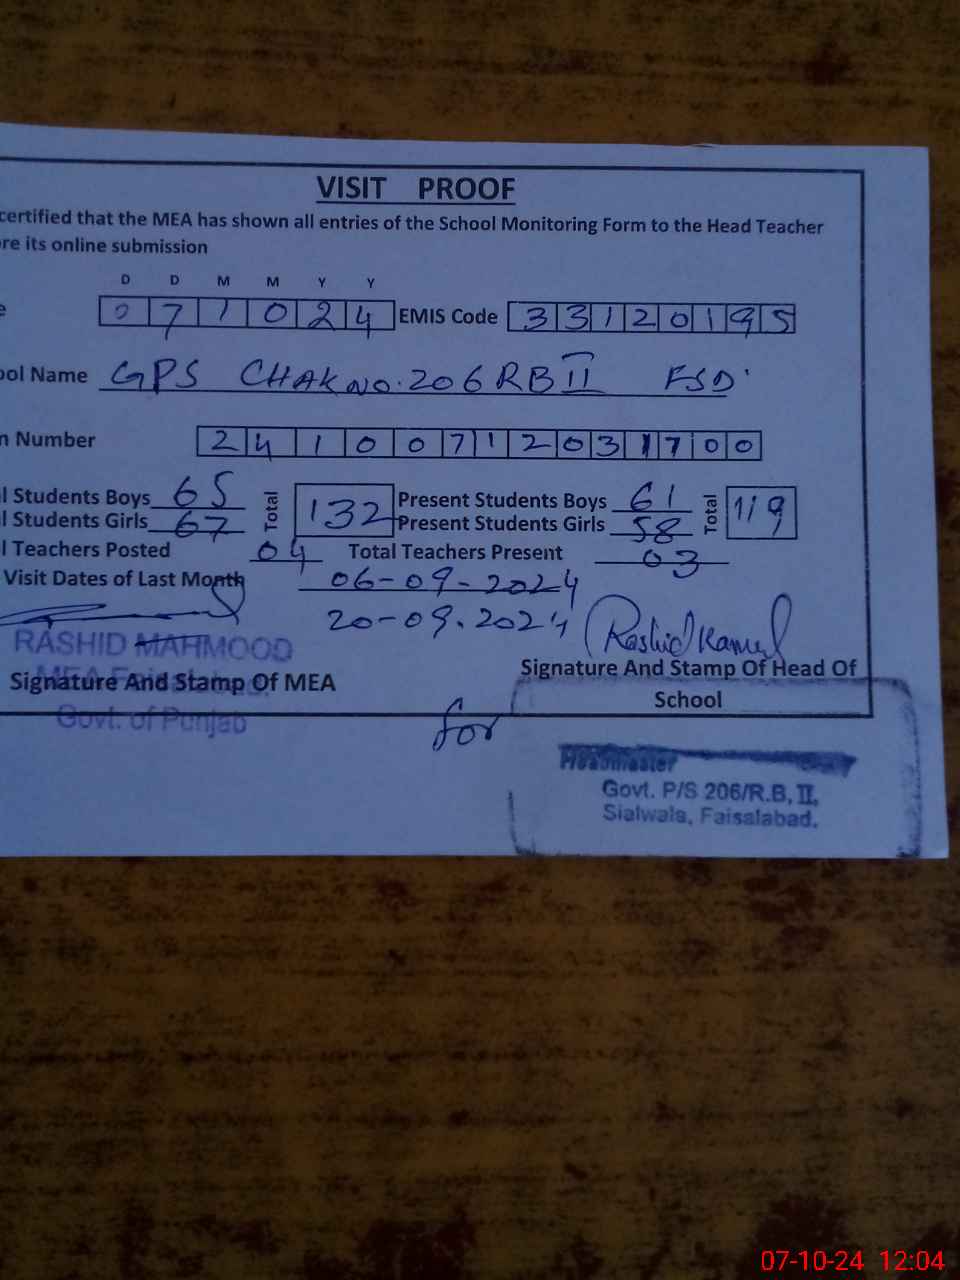 VISIT PROOF
certified that the MEA has shown all entries of the School Monitoring Form to the Head Teacher
re its online submission
D D M M Y Y
e 071024 EMIS Code 33120195
ool Name GPS CHAK NO. 206 RB II FSD
n Number 24100712031700
l Students Boys 65 Total 132 Present Students Boys 61 Total 119
l Students Girls 67 Present Students Girls 58
l Teachers Posted 04 Total Teachers Present 03
Visit Dates of Last Month 06-09-2024
20-09-2024
RASHID MAHMOOD Rashid Kamal
Signature And Stamp Of MEA Signature And Stamp Of Head Of
School
Govt. of Punjab for
Headmaster
Govt. P/S 206/R.B, II,
Sialwala, Faisalabad.
07-10-24 12:04